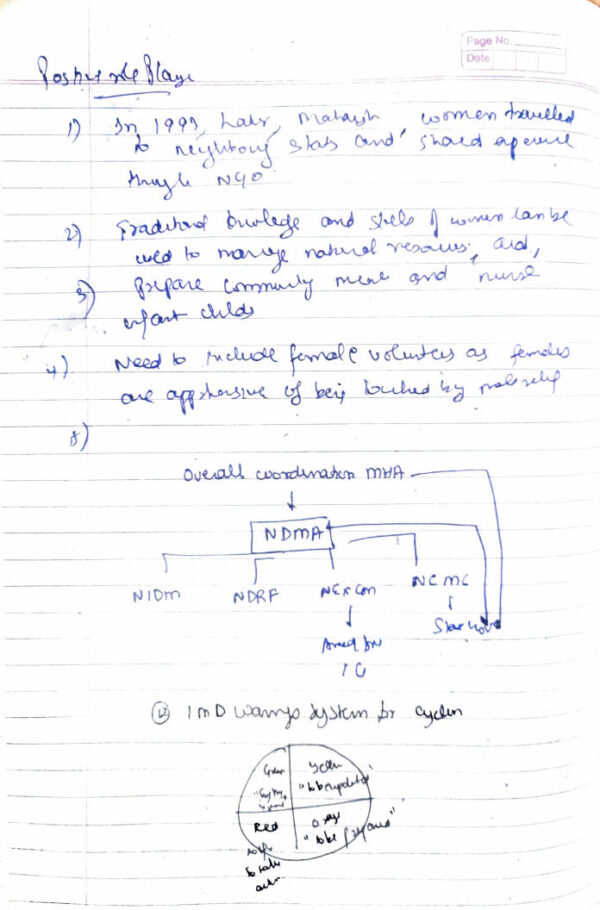 Page No.
Date
Positive role Played
1) In 1993, Latur, Maharsh, women travelled
to neighbouring stats and shared experience
through NGO
2) Traditional knowledge and skills of women can be
used to manage natural resources, aid,
3) Prepare community meal and nurse
infant childs
4) Need to include female volunters as females
are apprhensive of being touched by male
8)
Overall coordination MHA
NDMA
NIDM NDRF NEXCom NCMC
State Govt
IMD Warnings System for Cyclon
Green
"to be updated"
Red
"to be prepared"
to take